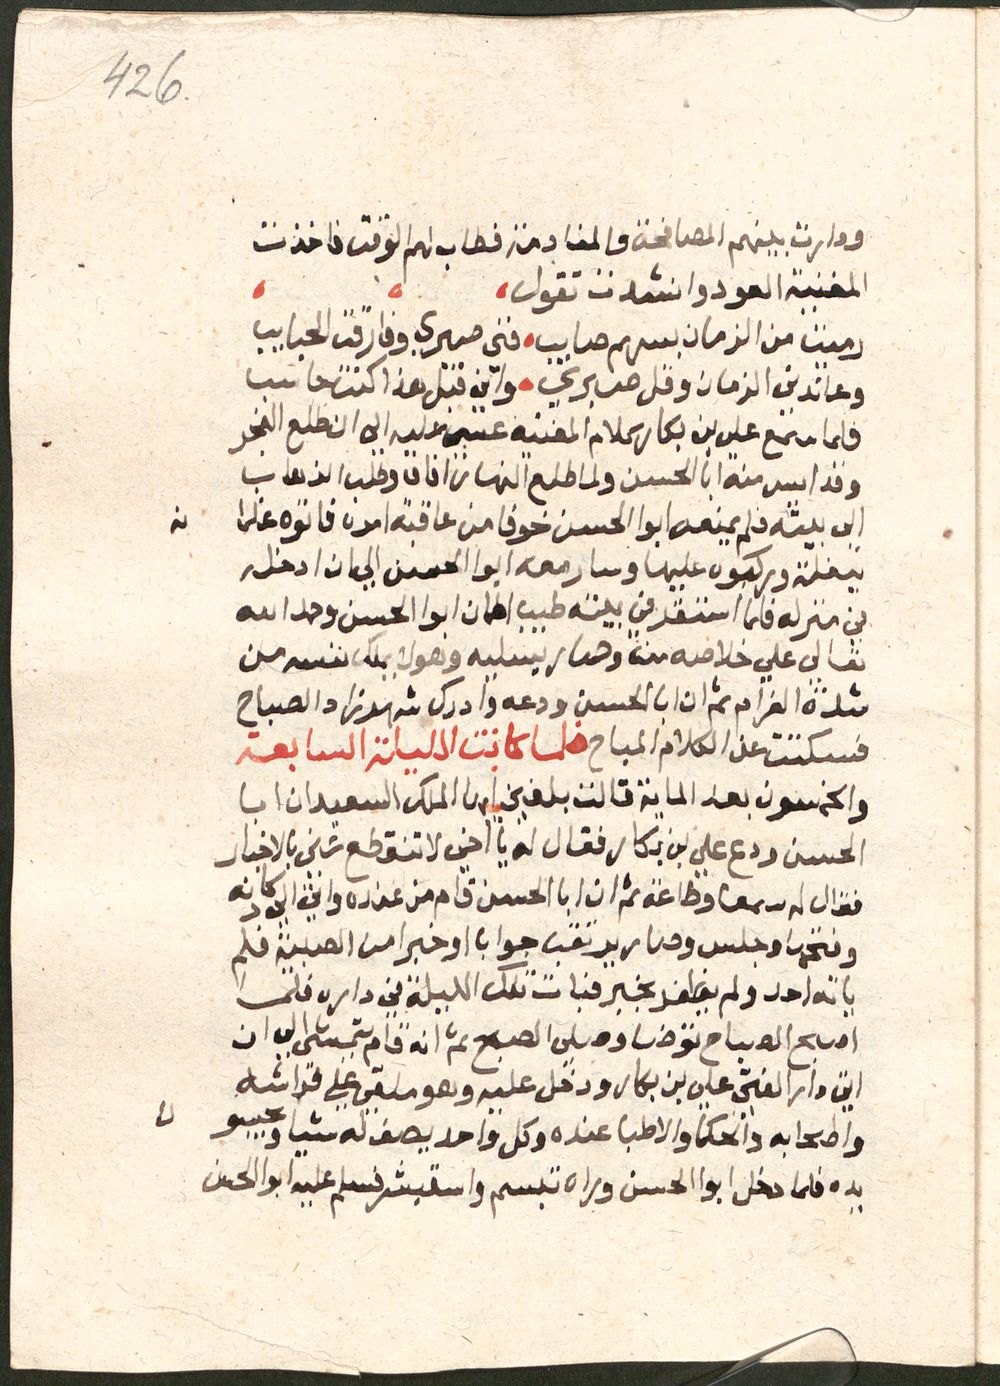 426.
ودارت بينهم المصافحة والمنادمة فطاب لهم الوقت فاخذت
المغنية العود وانشدت تقول
رميت من الزمان بسهم صايب فني صبري وفارقت الحبايب
وعاندني الزمان وقل صبري واني قبل هذا كنت حاسب
فلما سمع علي بن بكار كلام المغنية غشي عليه الى ان طلع الفجر
وقد ايس منه ابا الحسن ولما طلع النهار افاق وطلب الذهاب
الى بيته فلم يمنعه ابوا الحسن خوفا من عاقبة امره فاتوه غلمانه
ببغلة وركبوه عليها وسار معه ابوا الحسن الي ان ادخله
في منزله فلما استقر في بيته طيب اطمان ابوا الحسن وحمد الله
تعالى علي خلاصه منه وصار يسليه وهو لا يملك نفسه من
شدة الغرام ثم ان ابا الحسن ودعه وادرك شهرزاد الصباح
فسكتت عن الكلام المباح فلما كانت الليلة السابعة
والخمسون بعد الماية قالت بلغني ايها الملك السعيد ان ابا
الحسن ودع علي بن بكار فقال له يا اخي لا تنقطع عني بالاخبار
فقال له سمعا وطاعة ثم ان ابا الحسن قام من عنده واتي الي دكانه
وفتحها وجلس وصار يرتقب جوابا او خبرا من الصبية فلم
ياته احد ولم بخبر فبات تلك الليلة في داره فلما
اصبح الصباح توضا وصلى الصبح ثم انه قام يتمشى الي ان
اتي دار الفتى علي بن بكار ودخل عليه وهو ملقي علي فراشه
واصحابه والحكما والاطبا عنده وكل واحد يصف له شيا ويجيسو
يده فلما دخل ابوا الحسن وراه تبسم واستبشر فسلم عليه ابوا الحسن